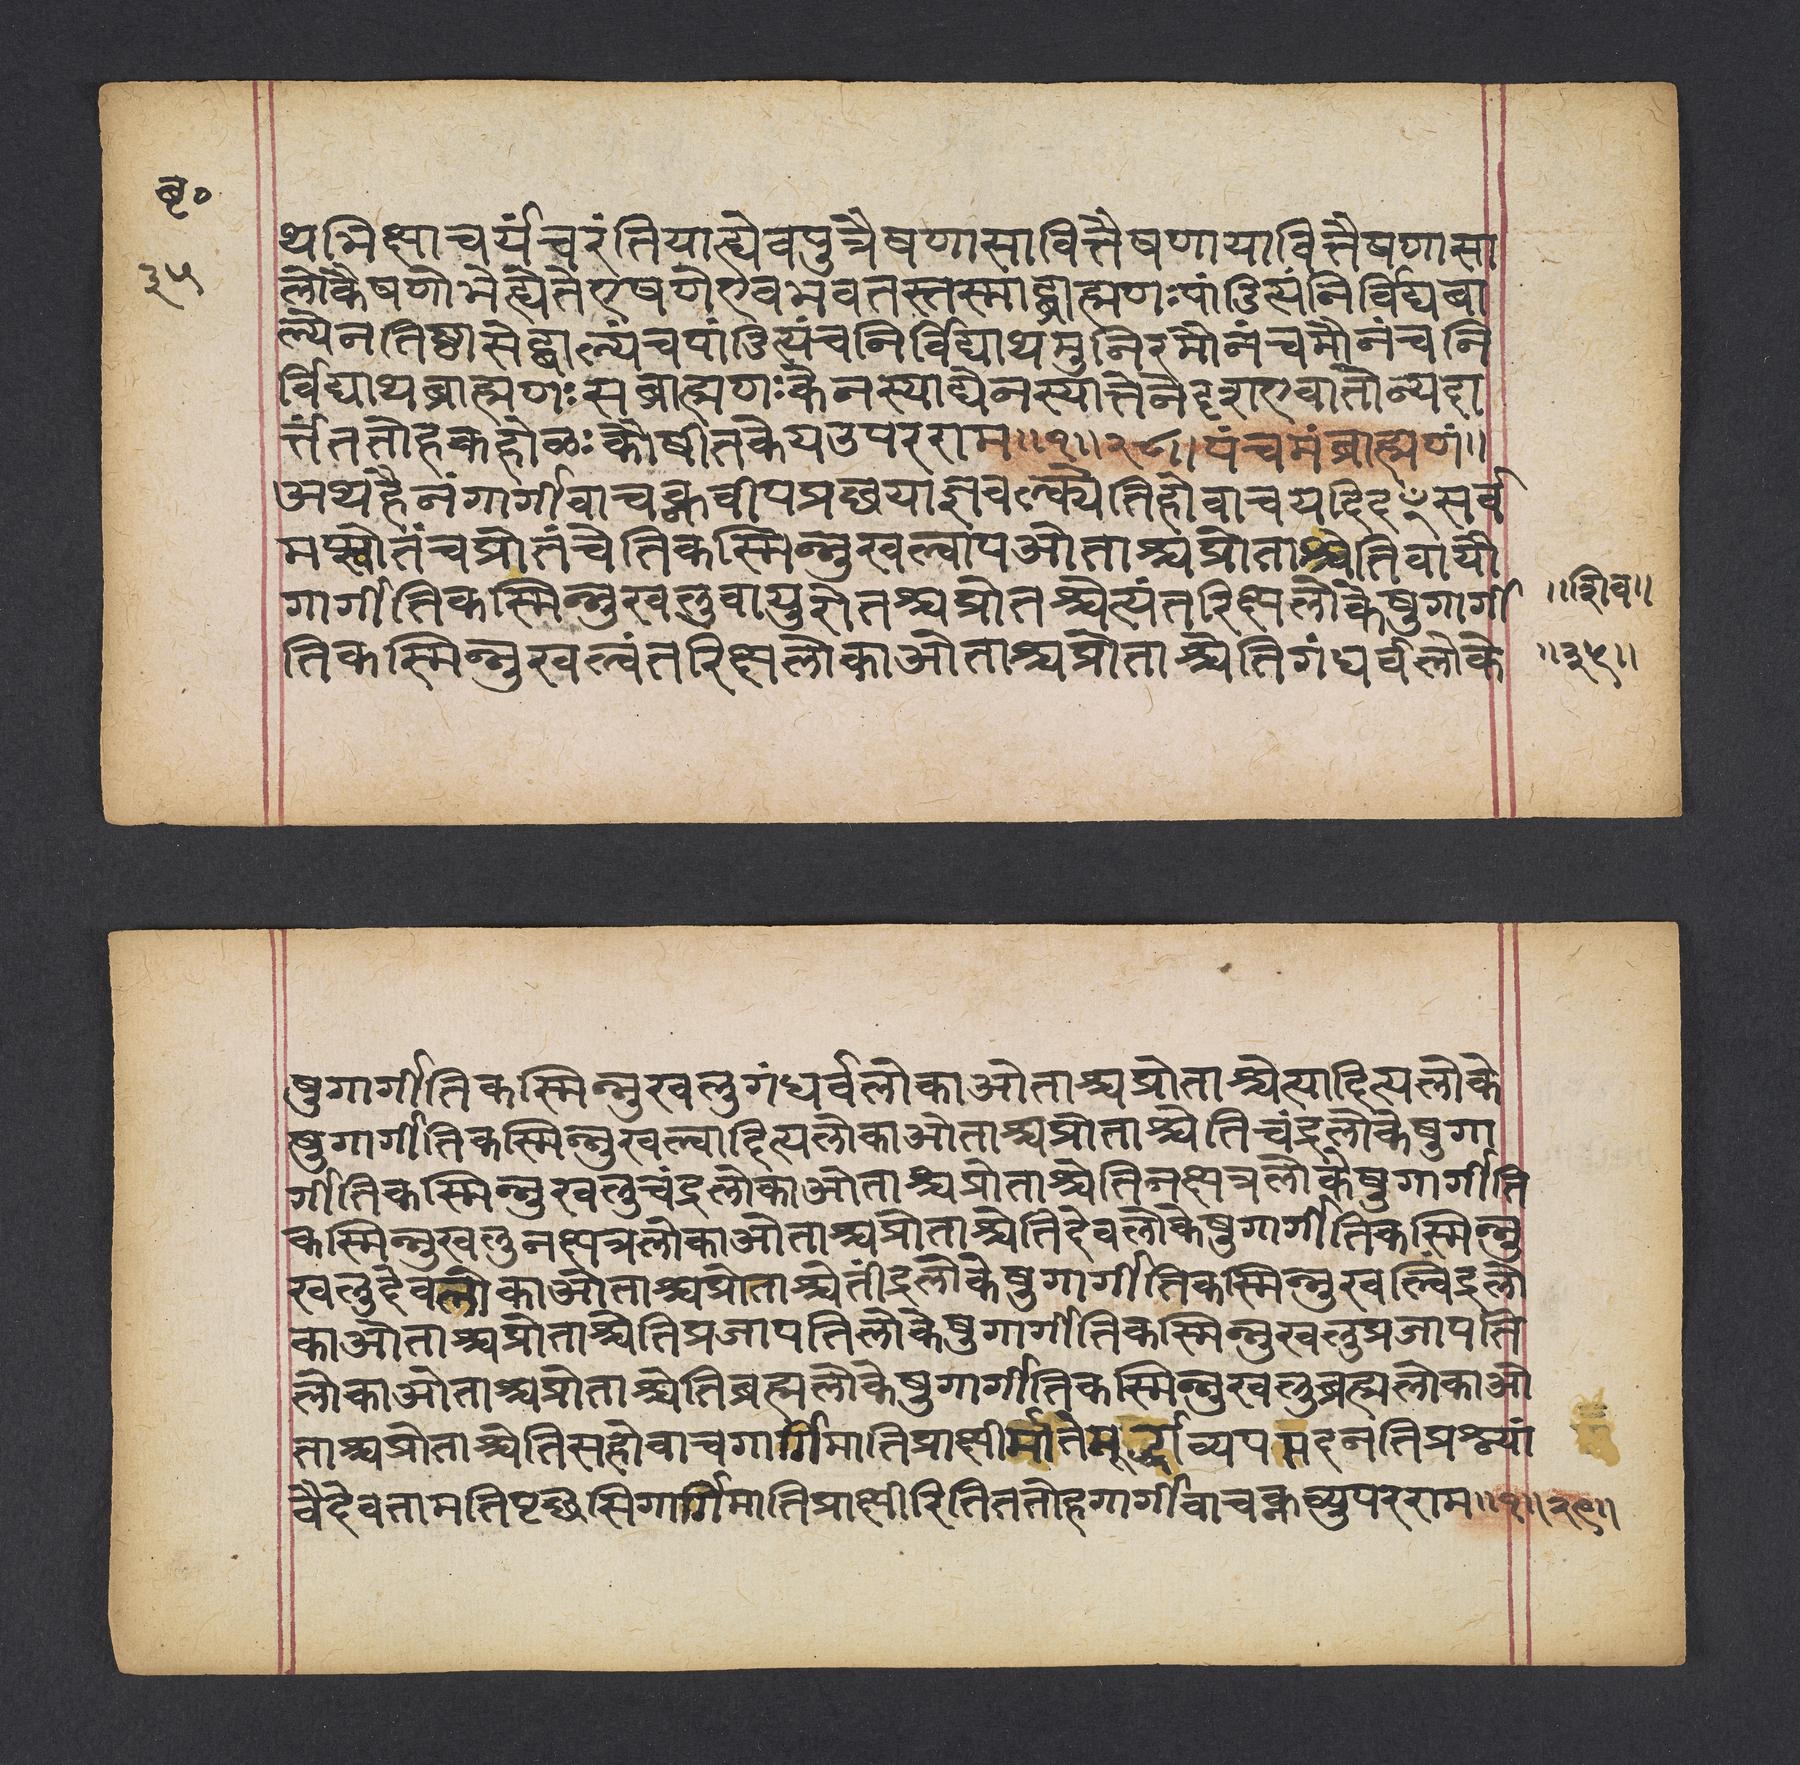 बृ०
३५
थभिक्षाचर्यंचरंतियाह्येवपुत्रैषणासावित्तैषणायावित्तैषणासा
लोकैषणोभेह्येतेएषणेएवभवतस्तस्माद्ब्राह्मणःपांडित्यंनिर्विद्यबा
ल्येनतिष्ठासेद्बाल्यंचपांडित्यंचनिर्विद्याथमुनिरमौनंचमौनंचनि
र्विद्याथब्राह्मणःसब्राह्मणःकेनस्याद्येनस्यात्तेनेदृशएवातोन्यदा
र्त्तंततोहकहोळःकौषीतकेयउपरराम॥१॥२८॥पंचमंब्राह्मणं॥
अथहैनंगार्गीवाचक्नवीपप्रछयाज्ञवल्क्येतिहोवाचयदिदꣳसर्व
मप्स्वोतंचप्रोतंचेतिकस्मिन्नुखल्वापओताश्चप्रोताश्चेतिवायौ
गार्गीतिकस्मिन्नुखलुवायुरोतश्चप्रोतश्चेत्यंतरिक्षलोकेषुगार्गी
॥शिव॥
तिकस्मिन्नुखल्वंतरिक्षलोकाओताश्चप्रोताश्चेतिगंधर्वलोके
॥३५॥
षुगार्गीतिकस्मिन्नुखलुगंधर्वलोकाओताश्चप्रोताश्चेत्यादित्यलोके
षुगार्गीतिकस्मिन्नुखल्वादित्यलोकाओताश्चप्रोताश्चेतिचंद्रलोकेषुगा
र्गीतिकस्मिन्नुखलुचंद्रलोकाओताश्चप्रोताश्चेतिनक्षत्रलोकेषुगार्गीति
कस्मिन्नुखलुनक्षत्रलोकाओताश्चप्रोताश्चेतिदेवलोकेषुगार्गीतिकस्मिन्नु
खलुदेवलोकाओताश्चप्रोताश्चेतींद्रलोकेषुगार्गीतिकस्मिन्नुखल्विंद्रलो
काओताश्चप्रोताश्चेतिप्रजापतिलोकेषुगार्गीतिकस्मिन्नुखलुप्रजापति
लोकाओताश्चप्रोताश्चेतिब्रह्मलोकेषुगार्गीतिकस्मिन्नुखलुब्रह्मलोकाओ
ताश्चप्रोताश्चेतिसहोवाचगार्गिमातिप्राक्षीर्मातेमूर्द्धाव्यपप्तदनतिप्रश्न्यां
वैदेवतामतिपृच्छसिगार्गिमातिप्राक्षीरितिततोहगार्गीवाचक्नव्युपरराम॥१॥२९॥